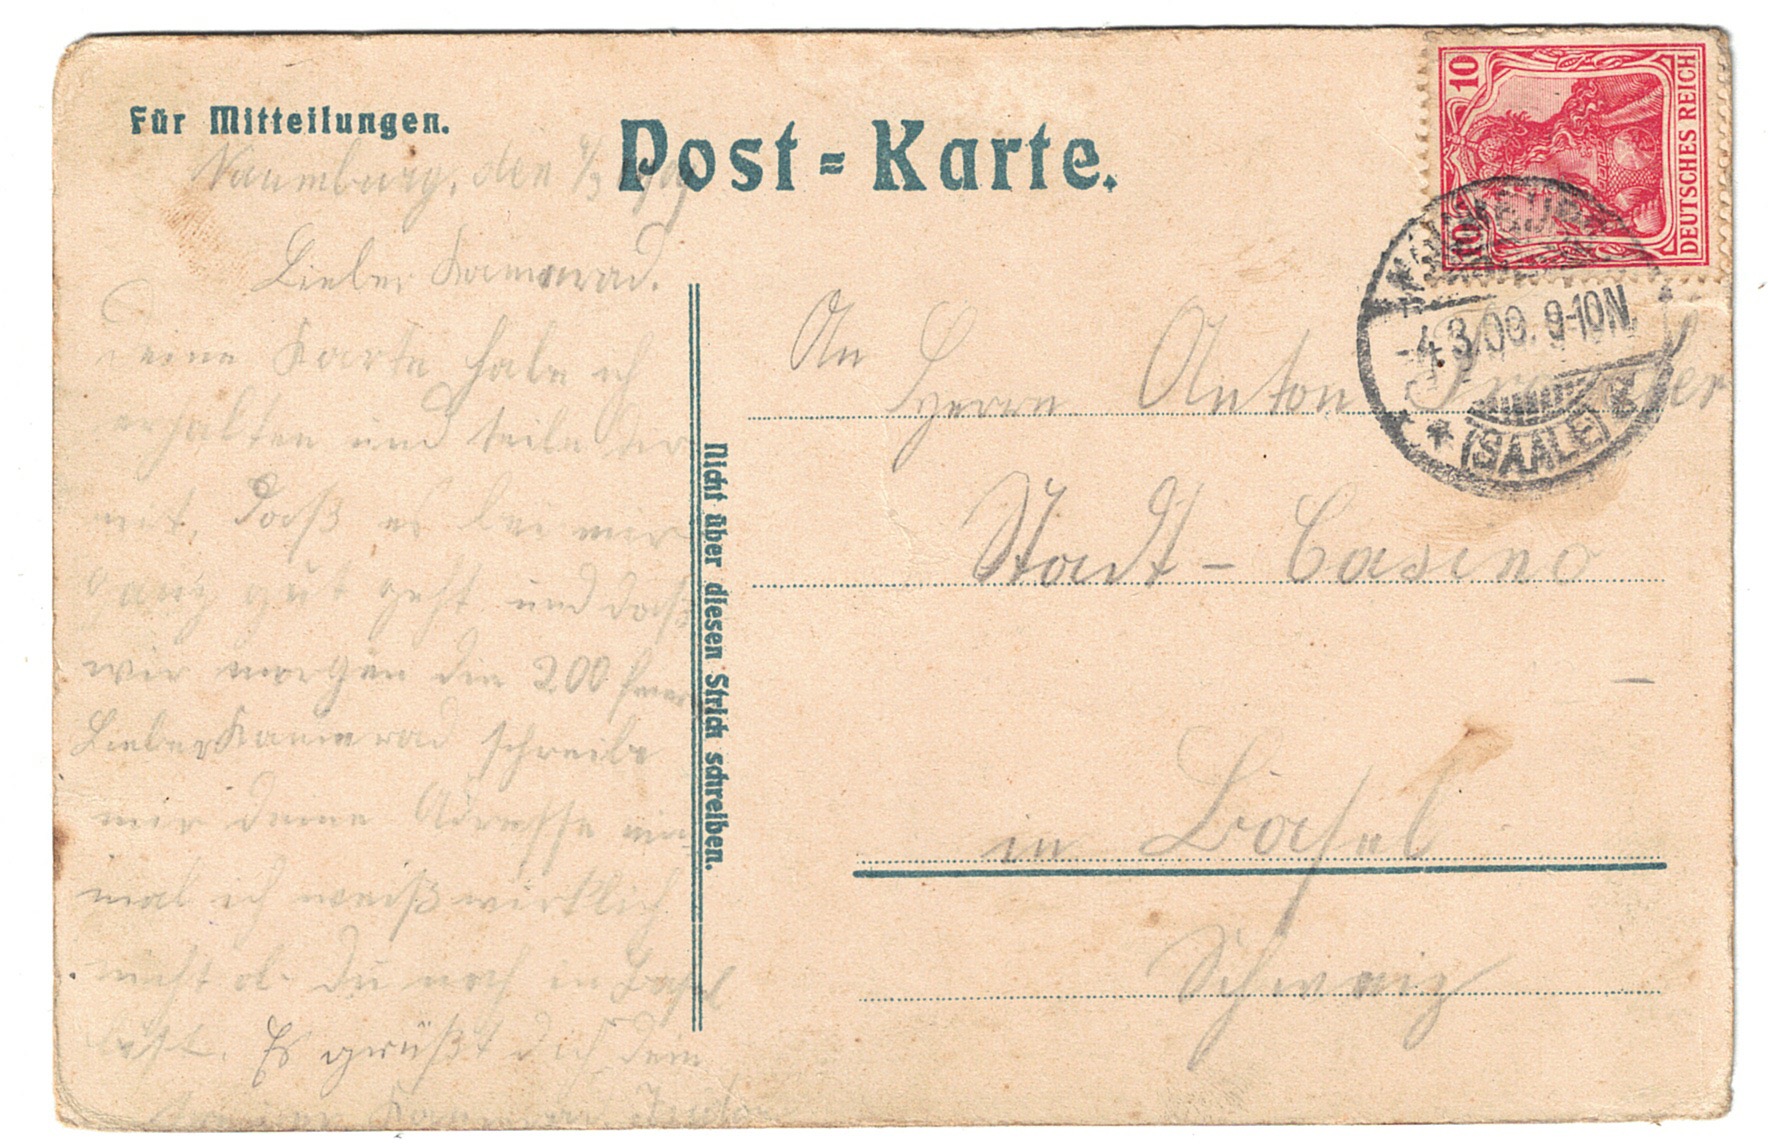 Für Mitteilungen.
Post-Karte.
Naumburg, den
Lieber Kamerad.
Deine Karte habe ich
erhalten und teile dir
mit, daß es bei mir
ganz gut geht und daß
wir morgen den 200
Lieber Kamerad schreibe
mir deine Adresse ein
mal ich weiß wirklich
nicht ob Du noch in Basel
bist. Es grüßt dich dein
Kamerad
Nicht über diesen Strich schreiben.
DEUTSCHES REICH
10
10
NAUMBURG
-4.3.09. 9-10N.
* (SAALE) 2
An
Herrn Anton
Stadt-Casino
in Basel
Schweiz